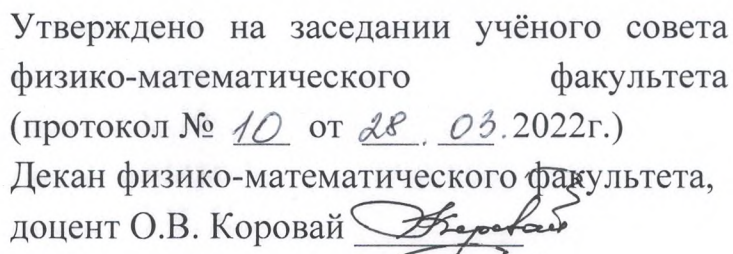 Утверждено на заседании учёного совета
физико-математического факультета
(протокол № 10 от 28.03.2022г.)
Декан физико-математического факультета,
доцент О.В. Коровай Коровай